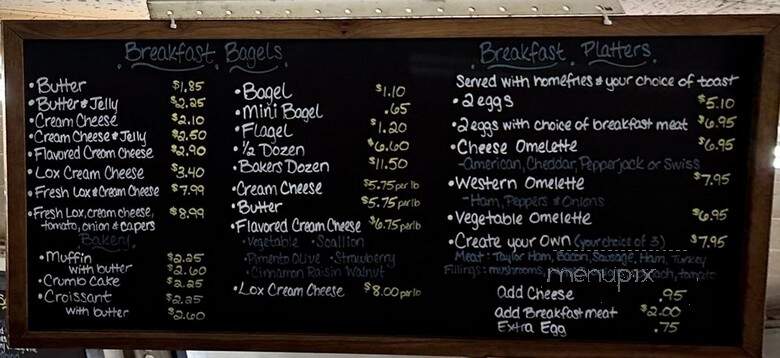 Breakfast Bagels
• Butter $1.85
• Butter & Jelly $2.25
• Cream Cheese $2.10
• Cream Cheese & Jelly $2.50
• Flavored Cream Cheese $2.90
• Lox Cream Cheese $3.40
• Fresh Lox & Cream Cheese $7.99
• Fresh Lox, cream cheese, $8.99
tomato, onion & capers
Bakery
• Muffin $2.25
with butter $2.60
• Crumb Cake $2.25
• Croissant $2.25
with butter $2.60
• Bagel $1.10
• Mini Bagel .65
• Flagel $1.20
• 1/2 Dozen $6.60
• Bakers Dozen $11.50
• Cream Cheese $5.75 per lb
• Butter $5.75 per lb
• Flavored Cream Cheese $6.75 per lb
• Vegetable • Scallion
• Pimento Olive • Strawberry
• Cinnamon Raisin Walnut
• Lox Cream Cheese $8.00 per lb
Breakfast Platters
Served with homefries & your choice of toast
• 2 eggs $5.10
• 2 eggs with choice of breakfast meat $6.95
• Cheese Omelette $6.95
-American, Cheddar, Pepperjack or Swiss
• Western Omelette $7.95
-Ham, Peppers & Onions
• Vegetable Omelette $6.95
• Create your Own (your choice of 3) $7.95
Meat: Taylor Ham, Bacon, Sausage, Ham, Turkey
Fillings: mushrooms, tomato
menupix
add Cheese .95
add Breakfast meat $2.00
Extra Egg .75